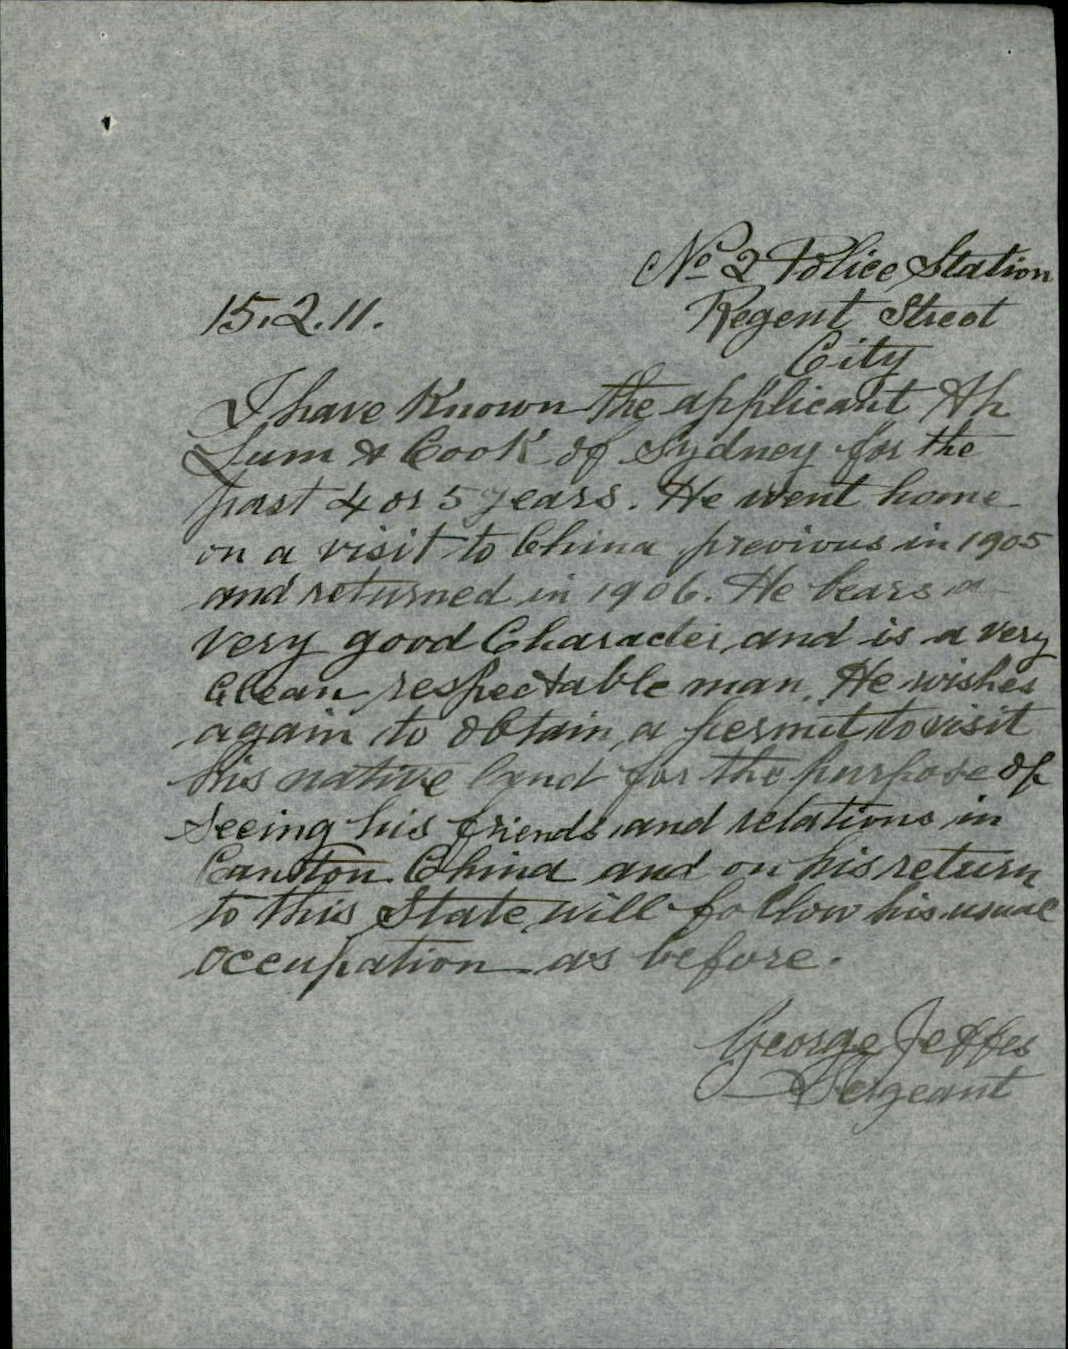 No 2 Police Station
15.2.11.
Regent Street
City
I have Known the applicant Ah
Lum a Cook of Sydney for the
past 4 or 5 years. He went home
on a visit to China previous in 1905
and returned in 1906. He bears a
very good Character, and is a very
Clean respectable man. He wishes
again to obtain a permit to visit
his native land for the purpose of
seeing his friends and relations in
Canton China and on his return
to this State will follow his usual
occupation as before.
George Jeffes
Sergeant